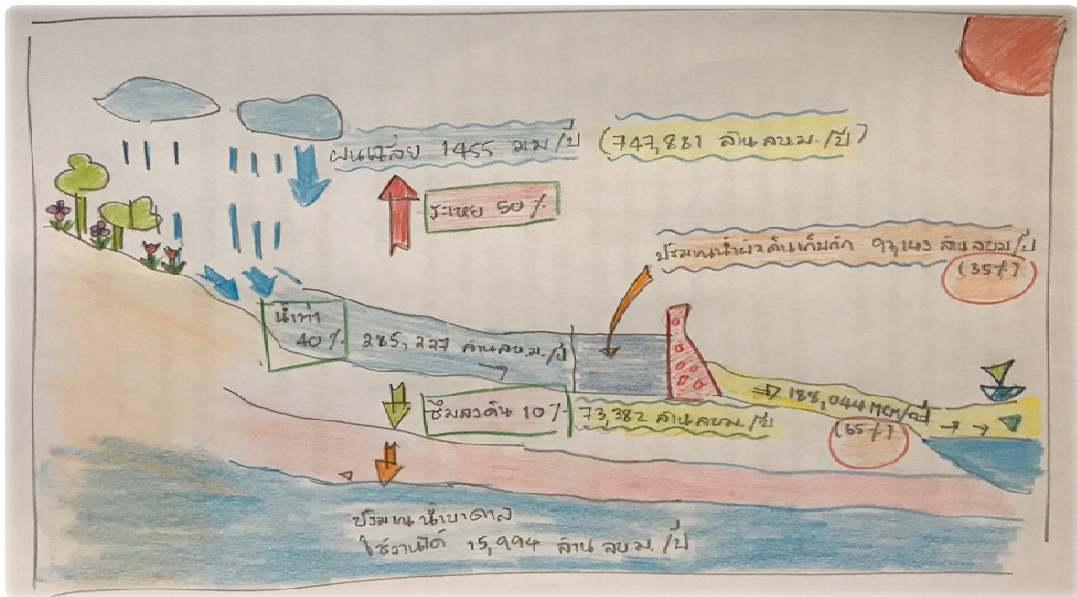 ฝนเฉลี่ย 1455 มม/ปี (747,881 ล้าน ลบ.ม./ปี)
ระเหย 50 %
ปริมาณน้ำผิวดินเก็บกัก 97,143 ล้าน ลบม/ปี
(35%)
น้ำท่า
40 % 285,227 ล้าน ลบ.ม./ปี
188,044 MCM/ปี
(65%)
ซึมลงดิน 10 % 73,382 ล้าน ลบม./ปี
ปริมาณ น้ำบาดาล
ใช้งานได้ 15,994 ล้าน ลบม./ปี